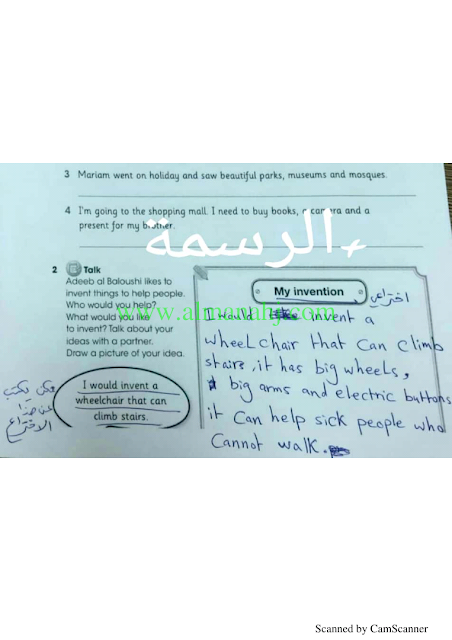 3 Mariam went on holiday and saw beautiful parks, museums and mosques.
4 I'm going to the shopping mall. I need to buy books, a camera and a
present for my brother.
الرسمة
2 Talk
Adeeb al Baloushi likes to
invent things to help people.
Who would you help?
What would you like
to invent? Talk about your
ideas with a partner.
Draw a picture of your idea.
I would invent a
wheelchair that can
climb stairs.
My invention
اختراعي
www.almanahj.com
I would invent a
wheelchair that can climb
stairs, it has big wheels,
big arms and electric buttons
it can help sick people who
cannot walk.
Scanned by CamScanner